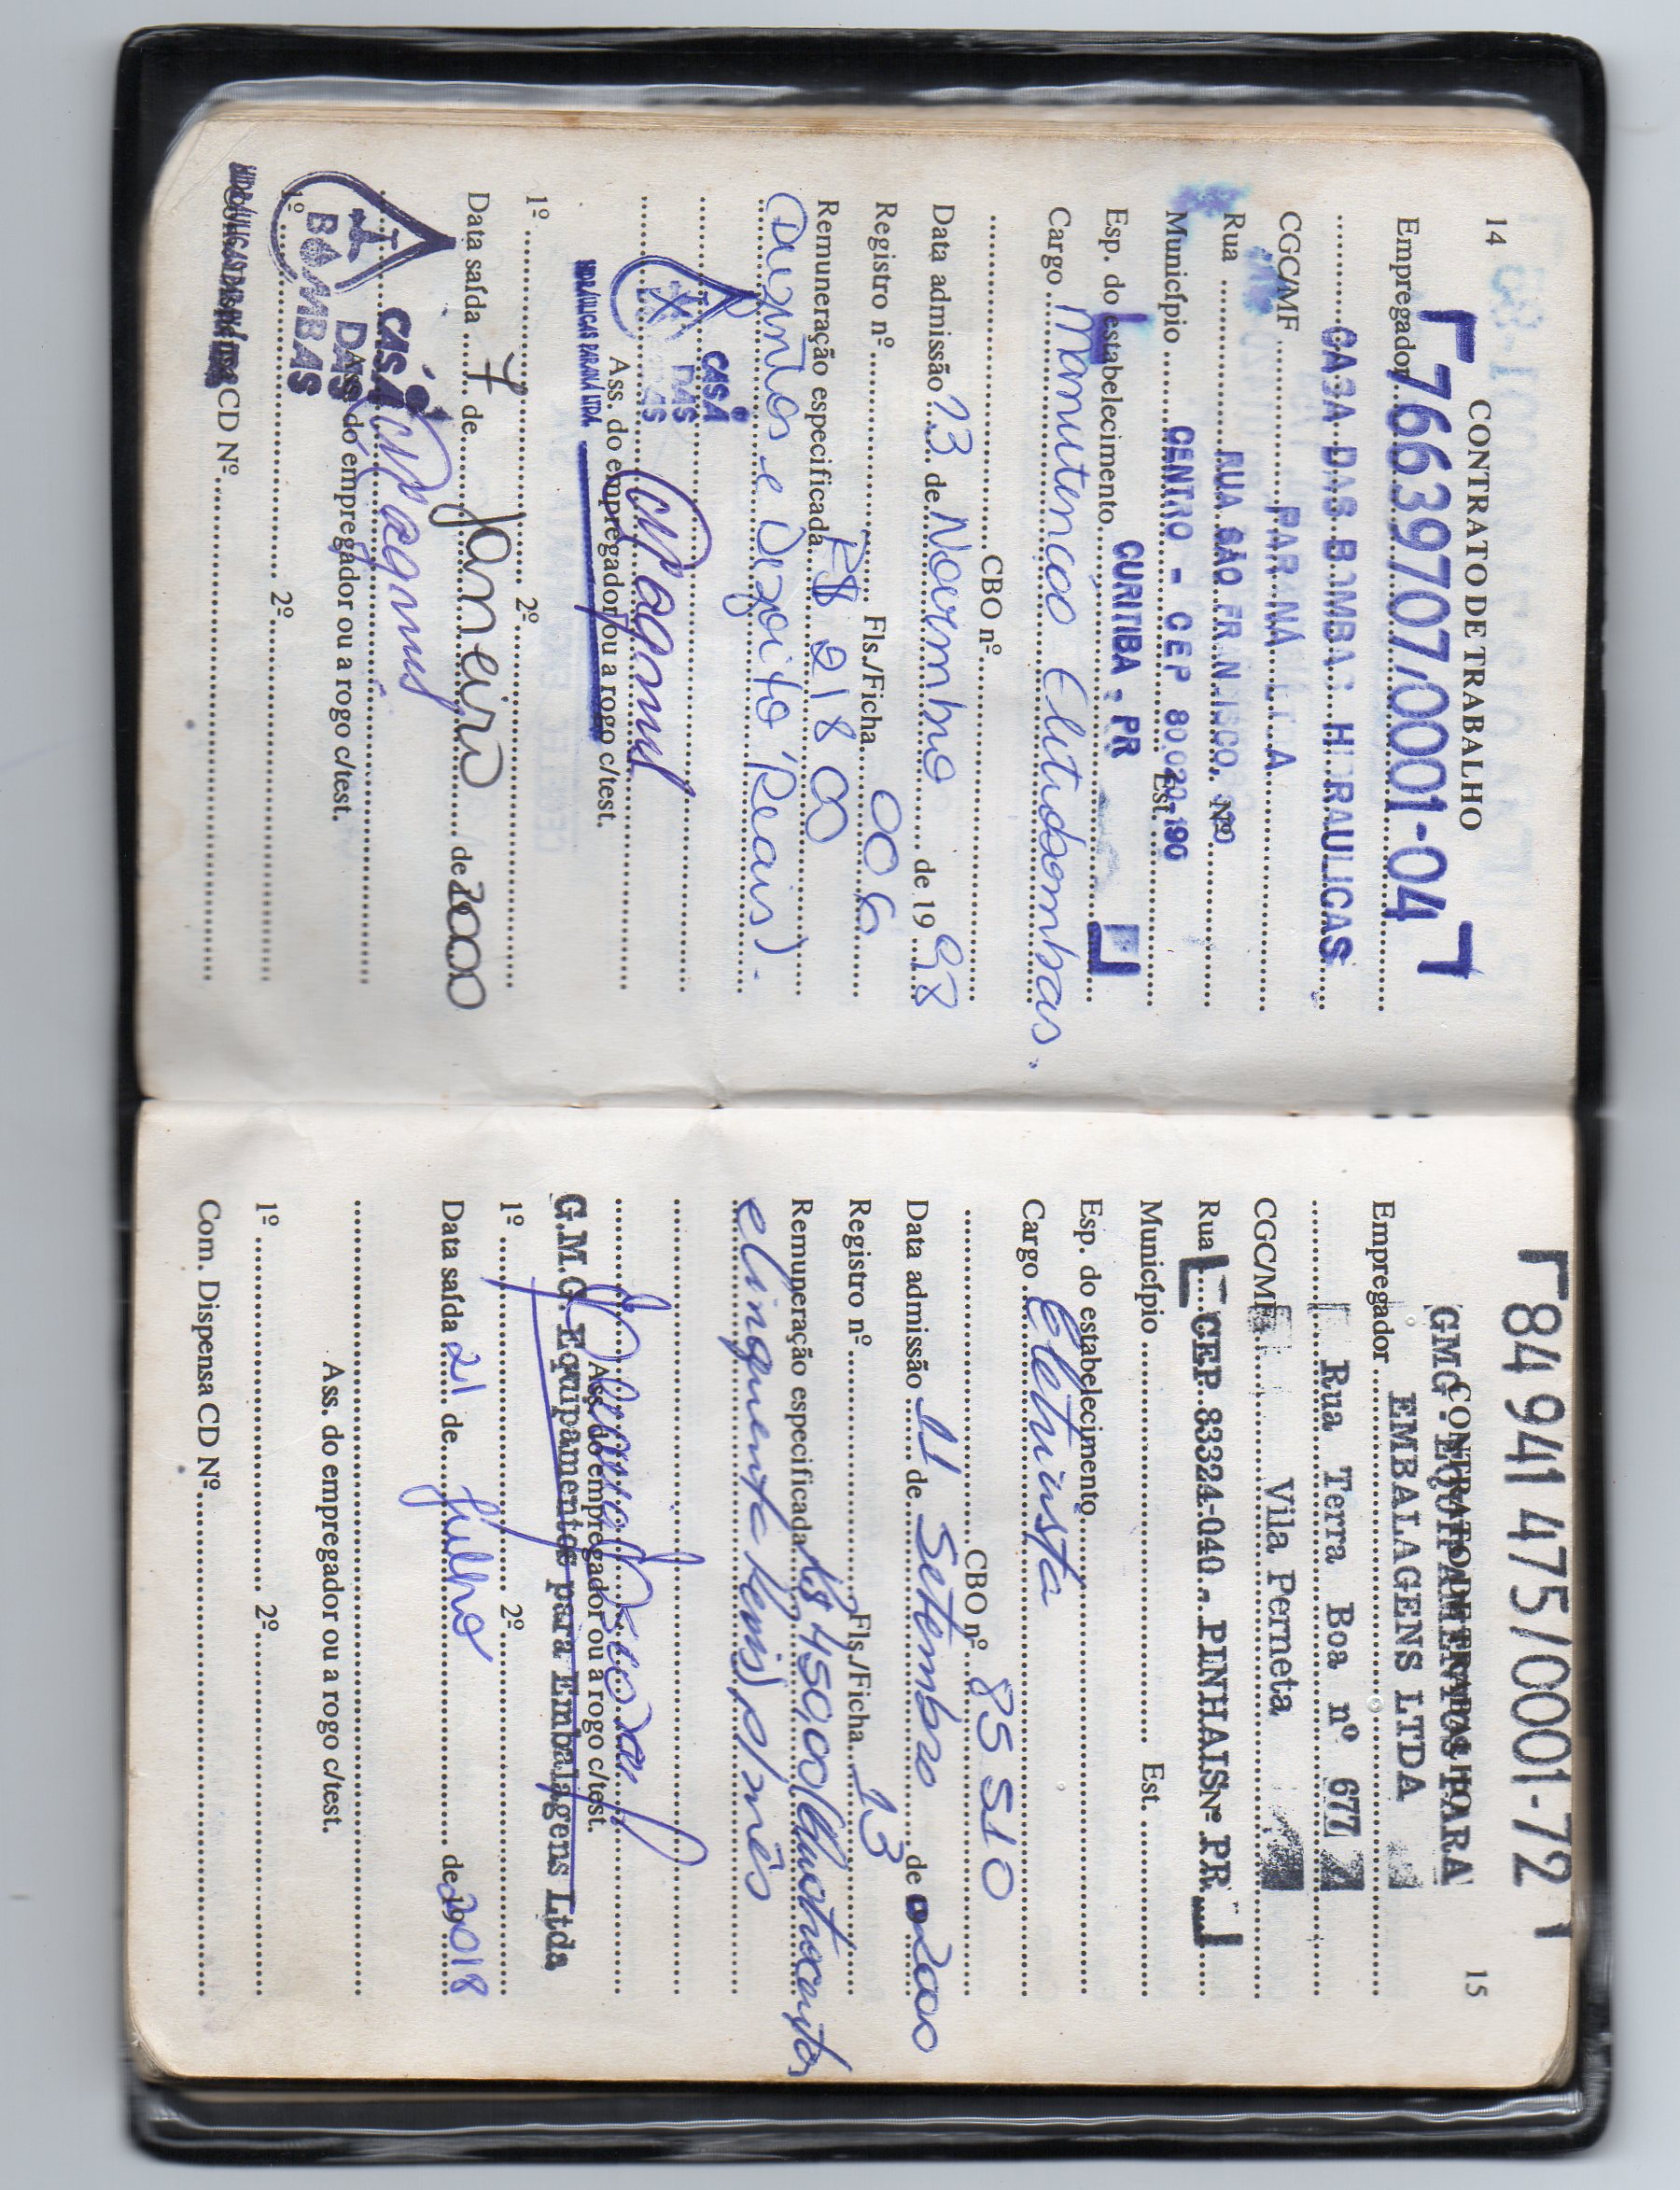 14
CONTRATO DE TRABALHO
76639707/0001-04
Empregador
CASA DAS BOMBAS HIDRAULICAS
CGC/MF PARANÁ LTDA
Rua RUA SÃO FRANCISCO, Nº
Município CENTRO - CEP 80.020-190 Est.
Esp. do estabelecimento CURITIBA - PR
Cargo Manutencao Eletrobombas.
CBO nº
Data admissão 23 de Novembro de 19 98
Registro nº Fls./Ficha 006
Remuneração especificada R$ 218 00
(Duzentos e Dezoito Reais).
CASA
DAS
HIDRAULICAS PARANÁ LTDA
Ass. do empregador ou a rogo c/test.
1º 2º
Data saída 7 de Janeiro de 2000
CASA
DAS
BOMBAS
Ass. do empregador ou a rogo c/test.
1º 2º
CD Nº
15
84 941 475/0001-72
CONTRATO DE TRABALHO
GMG - EQUIPAMENTOS PARA
EMBALAGENS LTDA
Empregador
Rua Terra Boa nº 677
CGC/MF Vila Perneta
Rua CEP 83324-040 - PINHAIS Nº PR
Município Est.
Esp. do estabelecimento
Cargo Eletricista
CBO nº 85510
Data admissão 11 de Setembro de 2000
Registro nº Fls./Ficha 13
Remuneração especificada R$ 450,00 (Quatrocentos
e cinquenta reais) p/ mês
Ass. do empregador ou a rogo c/test.
G.M.G. Equipamentos para Embalagens Ltda
1º 2º
Data saída 21 de Julho de 2018
Ass. do empregador ou a rogo c/test.
1º 2º
Com. Dispensa CD Nº